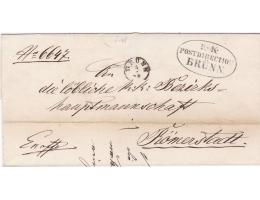 No 6647.
K:K:
POSTDIRECTION
BRÜNN
BRÜNN
An
die löbliche k:k: Bezirks-
hauptmannschaft
Römerstadt